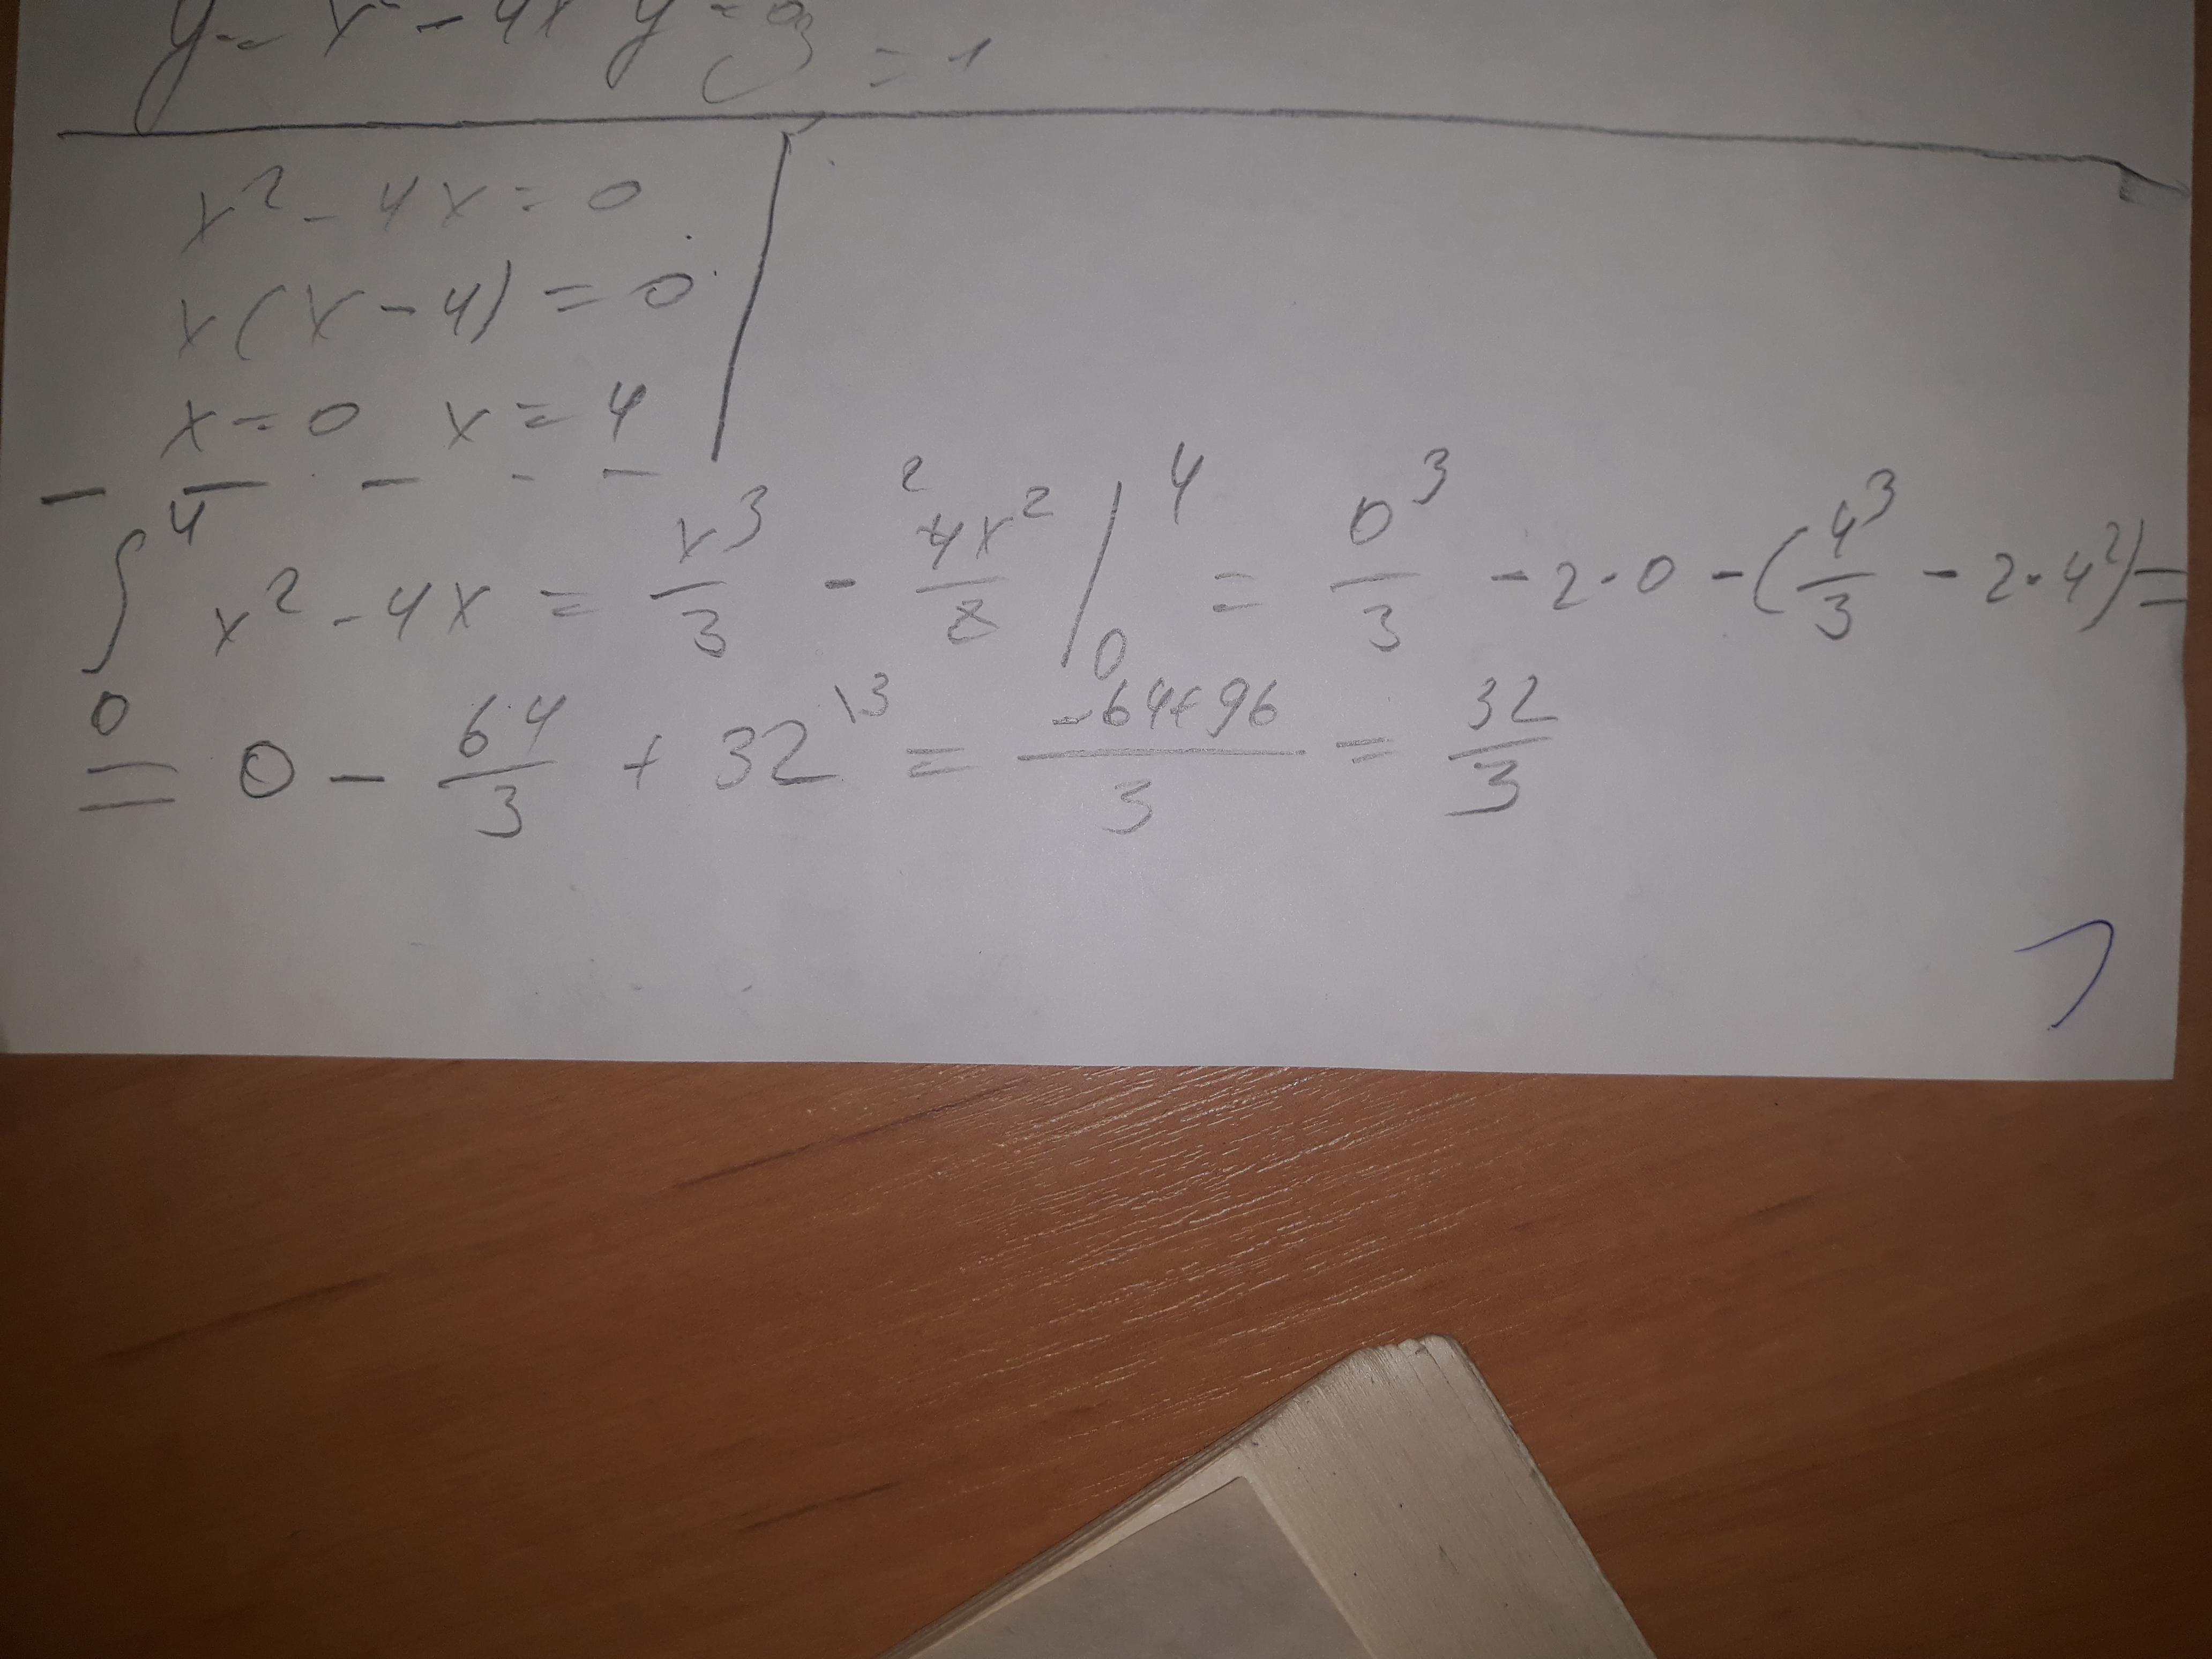 y = x² - 4x y = 0
= 1
x² - 4x = 0
x(x - 4) = 0
x = 0 x = 4
∫₀⁴ x² - 4x = x³/3 - 4x²/2 |₀⁴ = 0³/3 - 2·0 - (4³/3 - 2·4²) =
= 0 - 64/3 + 32\3 = -64+96/3 = 32/3